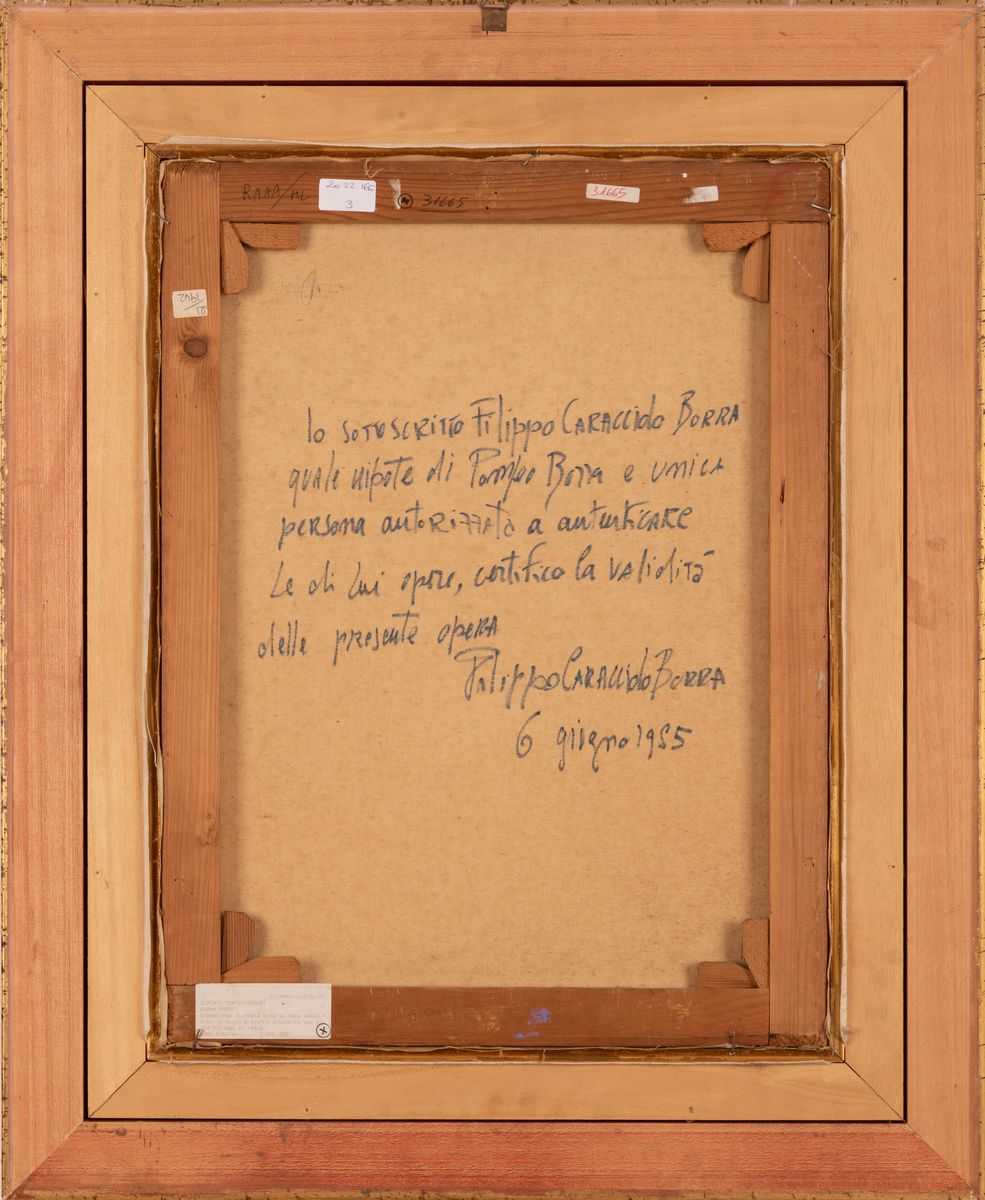 RAAB/
20 22 166
3
31665
31665
21/
1942
Io sottoscritto Filippo Caracciolo Borra
quale nipote di Pompeo Borra e unica
persona autorizzata a autenticare
le di lui opere, certifico la validità
della presente opera
Filippo Caracciolo Borra
6 giugno 1985
DIPINTI CONTEMPORANEI
BORRA POMPEO